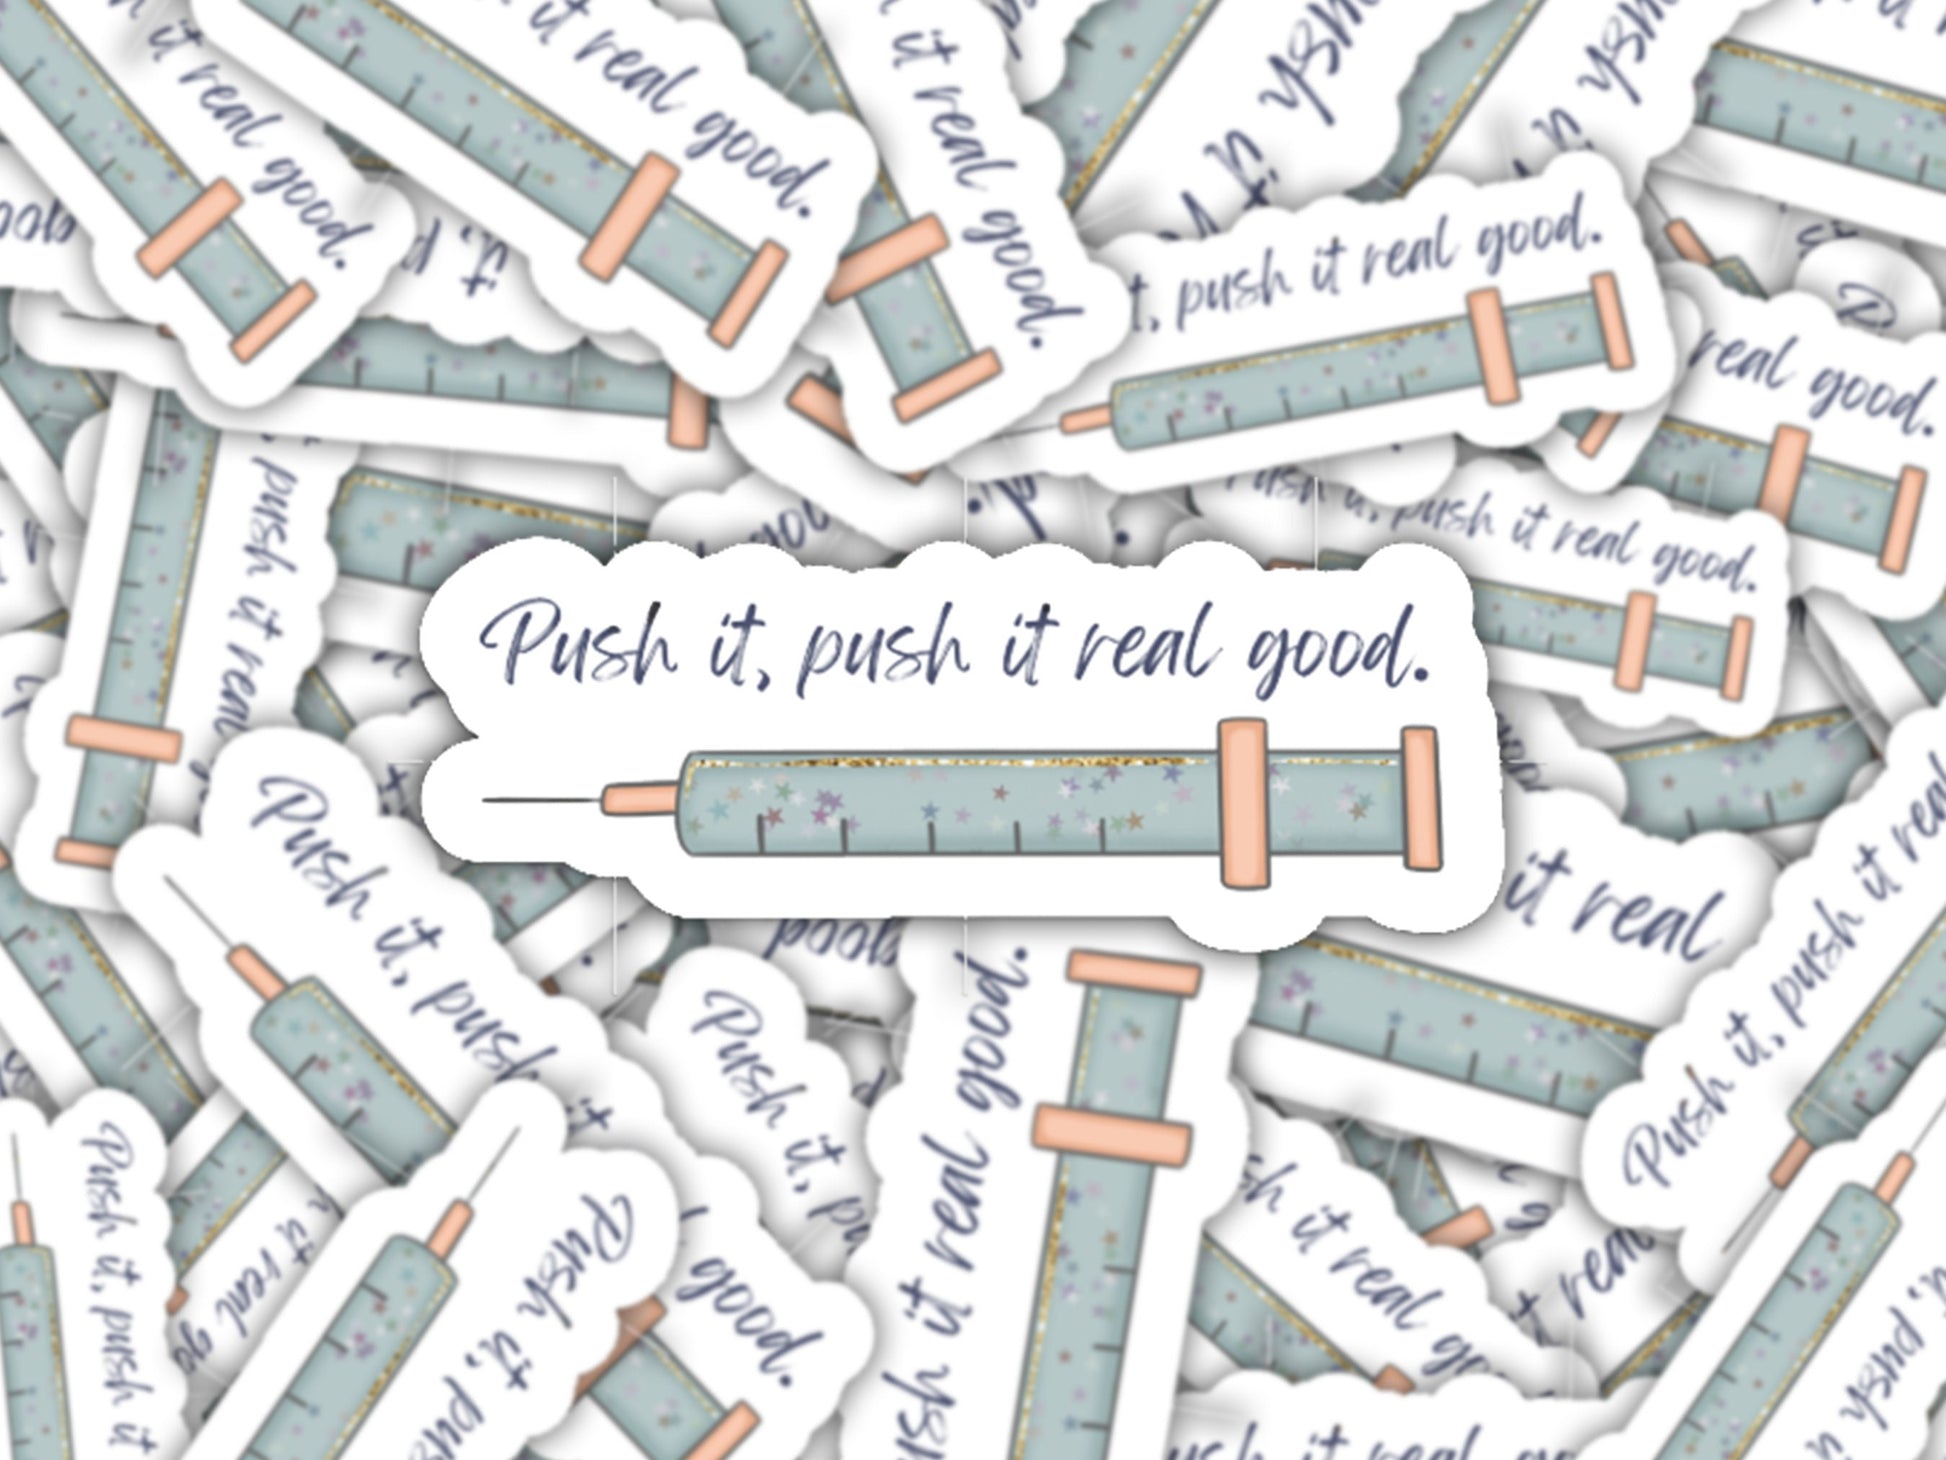 it real good.
it real good.
it real good.
push it real good.
real good.
push it real good.
push it real
Push it, push it real good.
it real
Push it, push it real
Push it, push it
Push it,
real good.
Push it, push it
Push it,
good.
push it real good.
it real